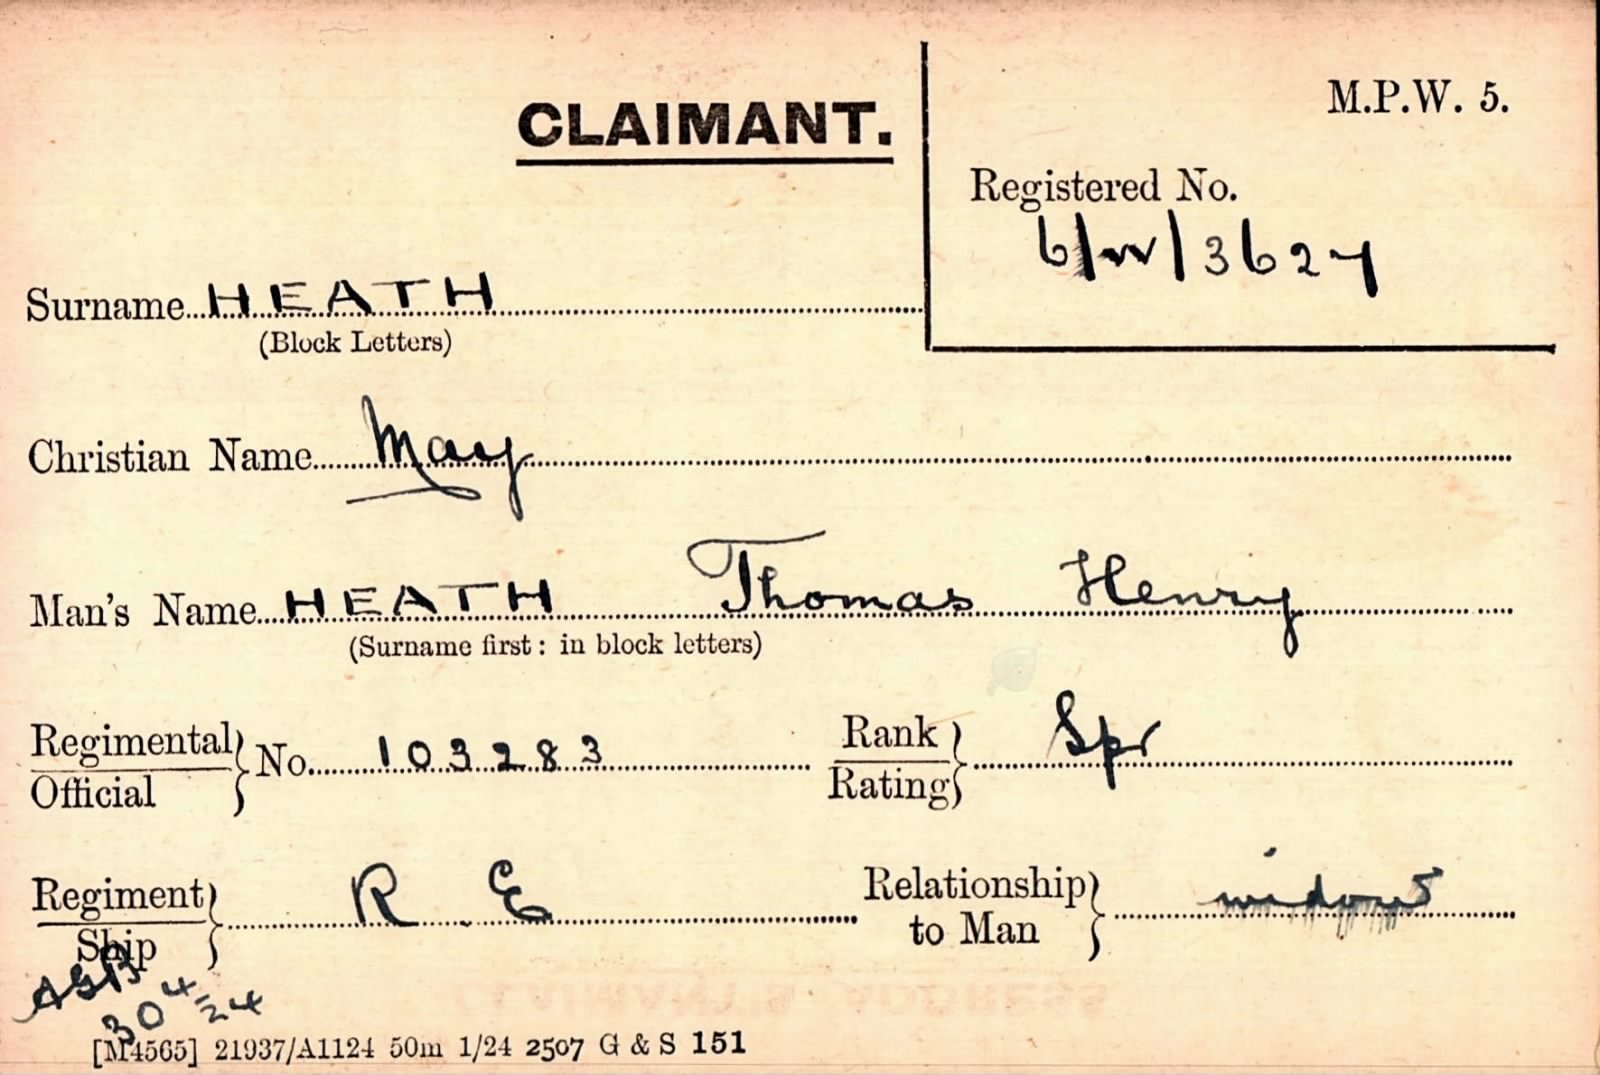 CLAIMANT.
M.P.W. 5.
Registered No.
6/W/3627
Surname HEATH
(Block Letters)
Christian Name May
Man's Name HEATH Thomas Henry
(Surname first: in block letters)
Regimental/Official No. 103283
Rank/Rating Spr
Regiment/Ship R E
Relationship to Man widow
AGB
30 4/24
[M4565] 21937/A1124 50m 1/24 2507 G & S 151
CLAIMANT'S ADDRESS